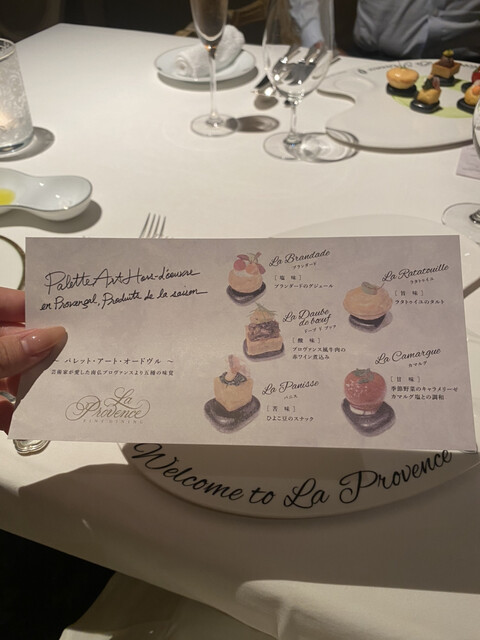 Palette Art Hors-d'œuvre
en Provençal, Produits de la saison
～ パレット・アート・オードヴル ～
芸術家が愛した南仏プロヴァンスより五種の味覚
La Provence
La Brandade
ブランダード
［ 塩 味 ］
ブランダードのグジェール
La Ratatouille
ラタトゥイユ
［ 旨 味 ］
ラタトゥイユのタルト
La Daube
de bœuf
ドーブ ド ブッフ
［ 酸 味 ］
プロヴァンス風牛肉の
赤ワイン煮込み
La Camargue
カマルグ
［ 甘 味 ］
季節野菜のキャラメリーゼ
カマルグ塩との調和
La Panisse
パニス
［ 苦 味 ］
ひよこ豆のスナック
Welcome to La Provence